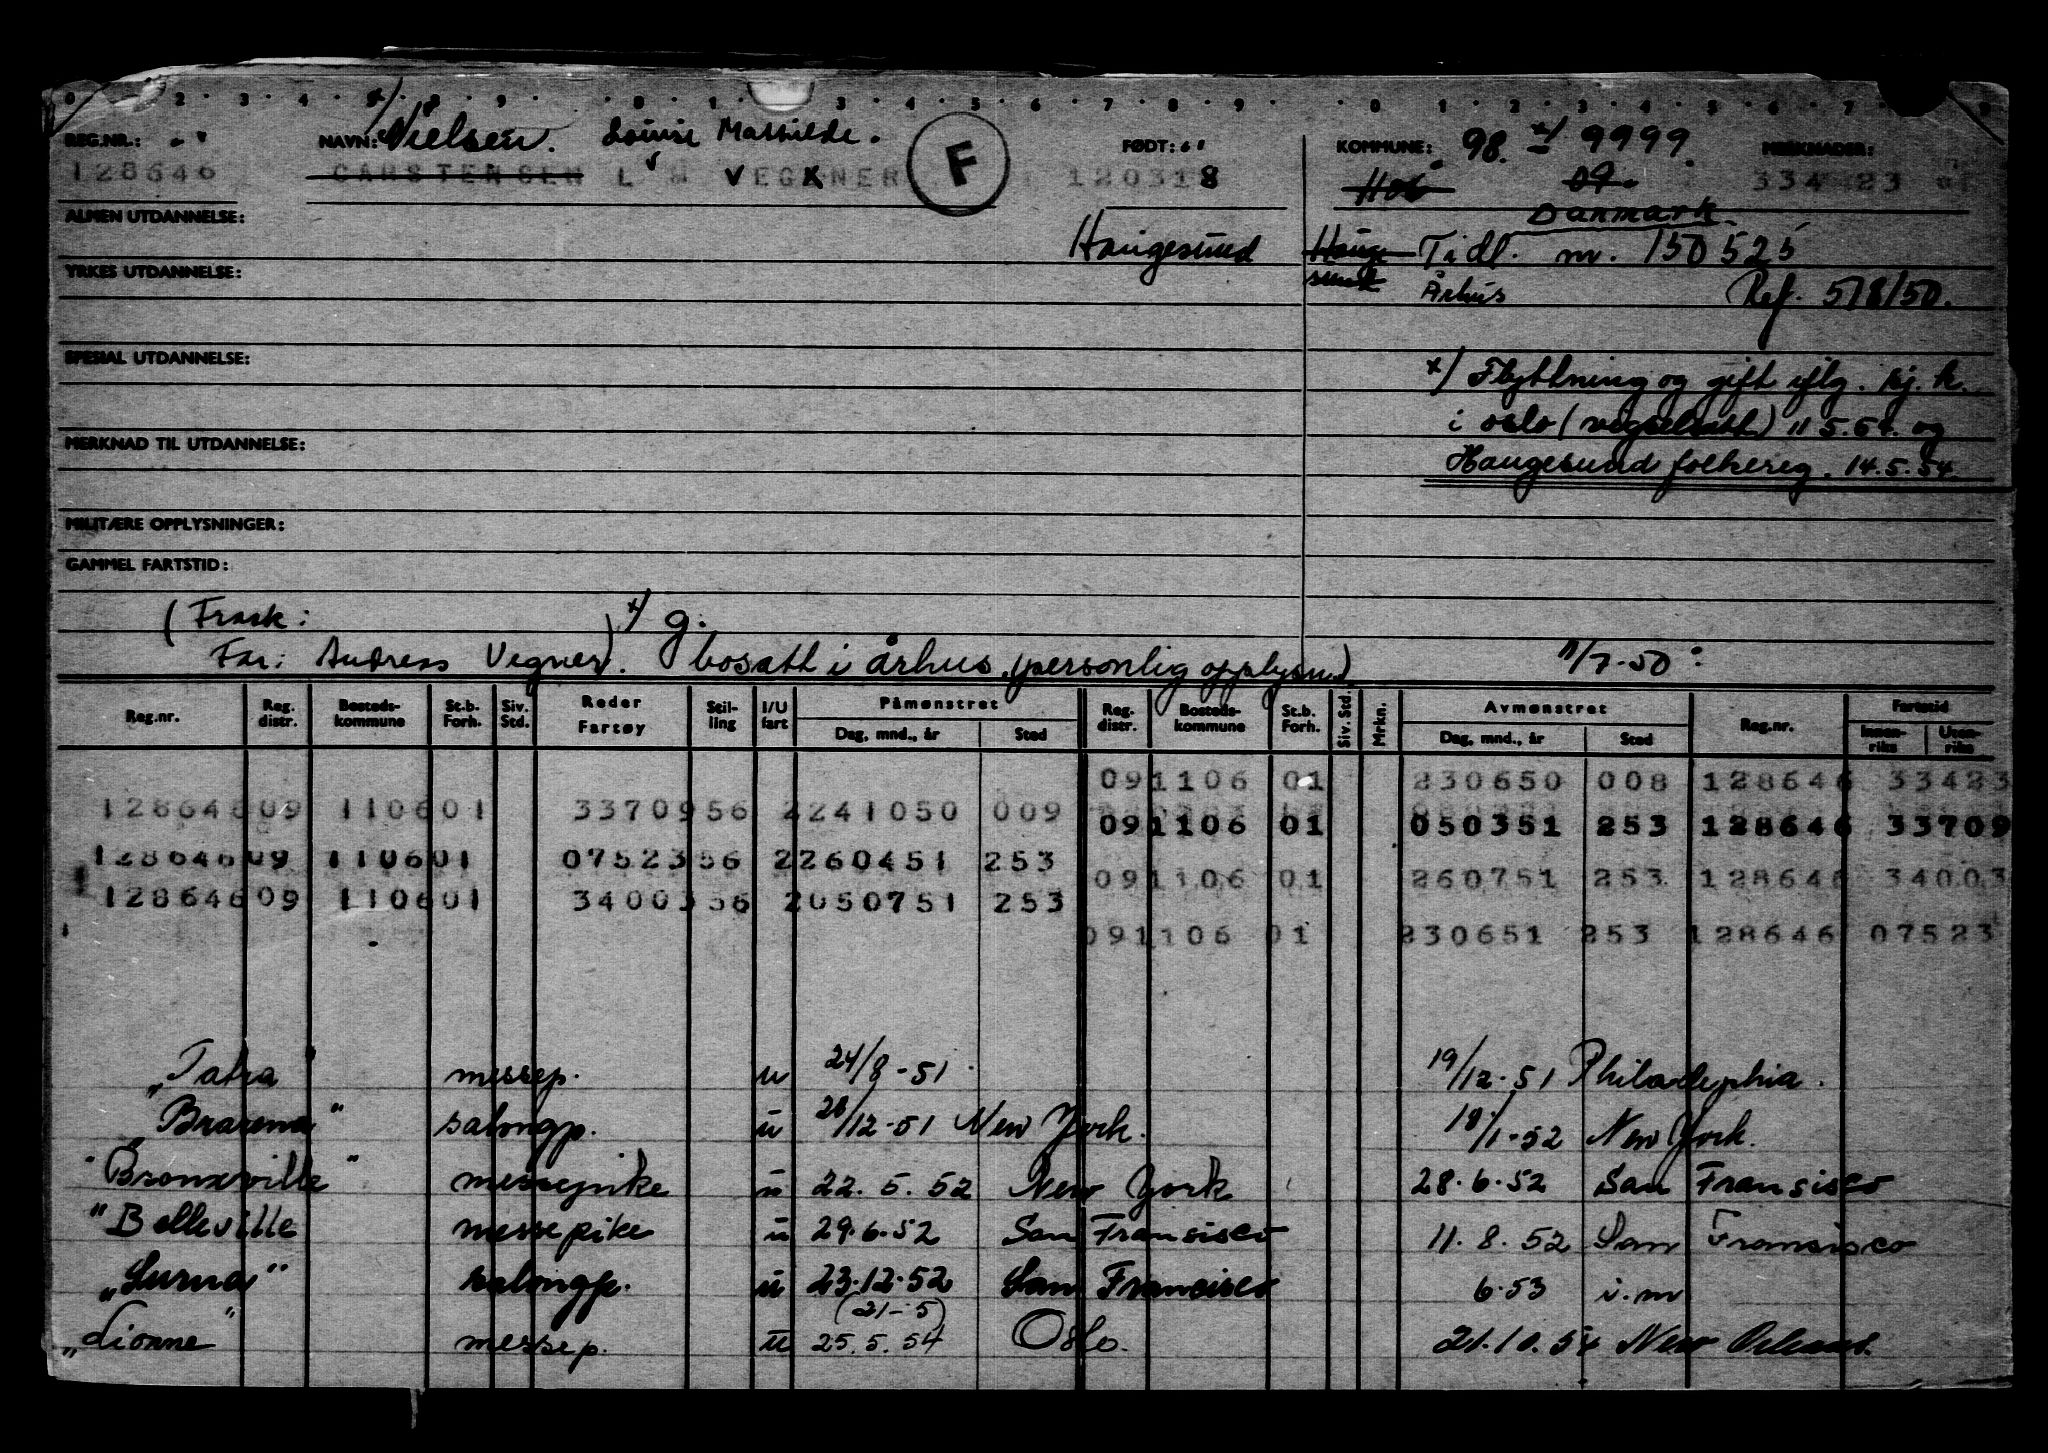 REG.NR.: NAVN: x/ Nielsen. Louise Mathilde. F FØDT: KOMMUNE: 98. x/ 9999. MERKNADER:
128646 CARSTENSEN L N VEGNER 120318 09. 334423
ALMEN UTDANNELSE: Danmark.
Haugesund Tidl. nr. 150525
YRKES UTDANNELSE: Århus Ref. 518/50.
SPESIAL UTDANNELSE: x/ Flyttning og gift iflg. kj.k.
i oslo (vigselsatt) 11 5.54. og
MERKNAD TIL UTDANNELSE: Haugesund folkereg. 14.5.54.
MILITÆRE OPPLYSNINGER:
GAMMEL FARTSTID:
(Frask: x/ g.
Far: Andreas Vegner). bosatt i århus. (personlig opplysn.) 11/7-50:
Reg.nr. Reg. distr. Bosteds-kommune St.b. Forh. Siv. Std. Reder Fartøy Stil-ling I/U fart Påmønstret Dag, mnd., år Sted Reg. distr. Bosteds-kommune St.b. Forh. Siv. Std. Mrkn. Avmønstret Dag, mnd., år Sted Reg.nr. Fartstid Innen-riks Uten-riks
091106 01 230650 008 128646 33423
128646 09 1106 01 33709 56 2 241050 009
091106 01 050351 253 128646 33709
128646 09 1106 01 07523 56 2 260451 253
091106 01 260751 253 128646 34003
128646 09 1106 01 34003 56 2 050751 253
091106 01 230651 253 128646 07523
„Tatra" messep. u 24/8-51 19/12-51 Philadelphia.
Brarena" salongp. u 28/12-51 New York. 18/1-52 New York.
"Bronxville" messepike u 22.5.52 New York 28.6.52 San Fransisco
"Belleville messepike u 29.6.52 San Fransisco 11.8.52 San Fransisco
„Surna" salongp. u 23.12.52 San Francisco 6.53 i.m
(21-5)
„Lionne" messep. u 25.5.54 Oslo. 21.10.54 New Orleans.